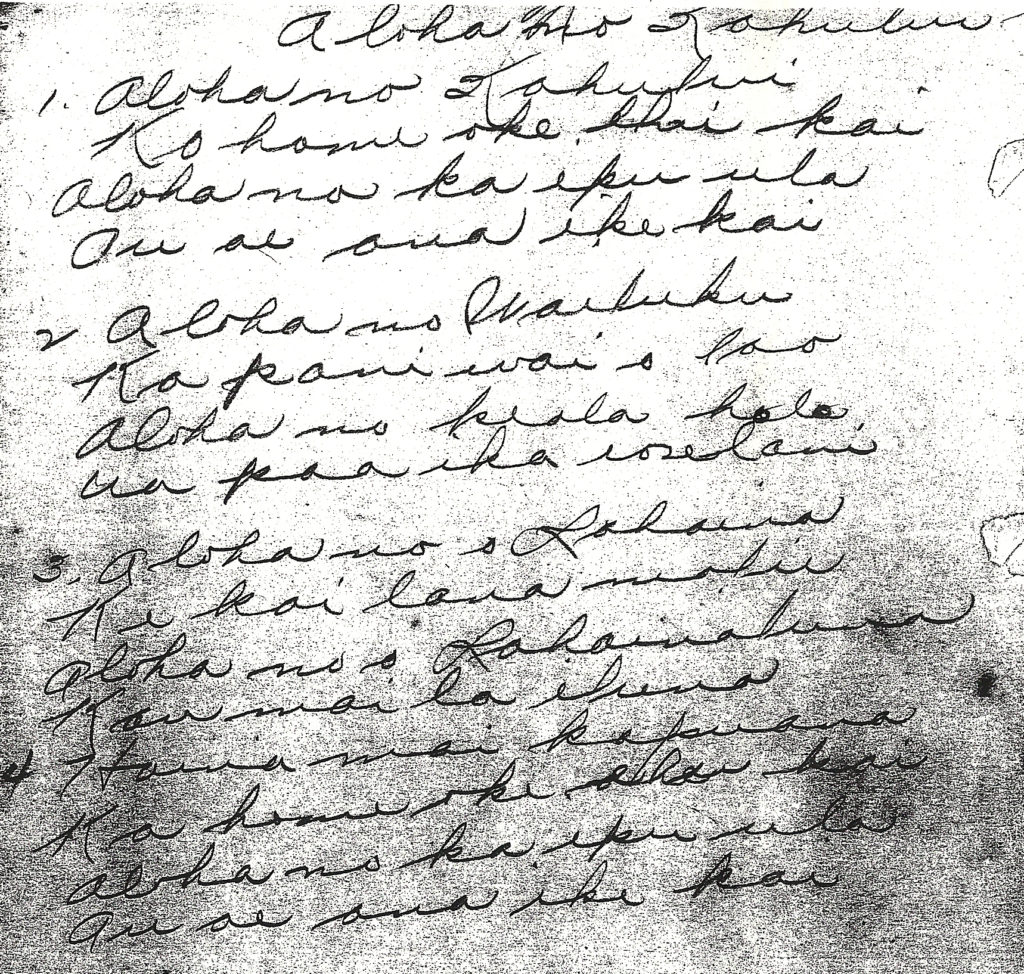 Aloha no Kahului
1. Aloha no Kahului
Ko home oke kai
Aloha no ka ipu ula
Au ae ana ike kai
2 Aloha no Wailuku
Ka pani wai o Iao
Aloha no keala hele
ua paa ika roselani
3. Aloha no o Lahaina
Ke kai lana malie
Aloha no o Lahainaluna
Kau mai la iluna
4 Haina mai kapuana
Ka home oke kai
Aloha no ka ipu ula
Au ae ana ike kai